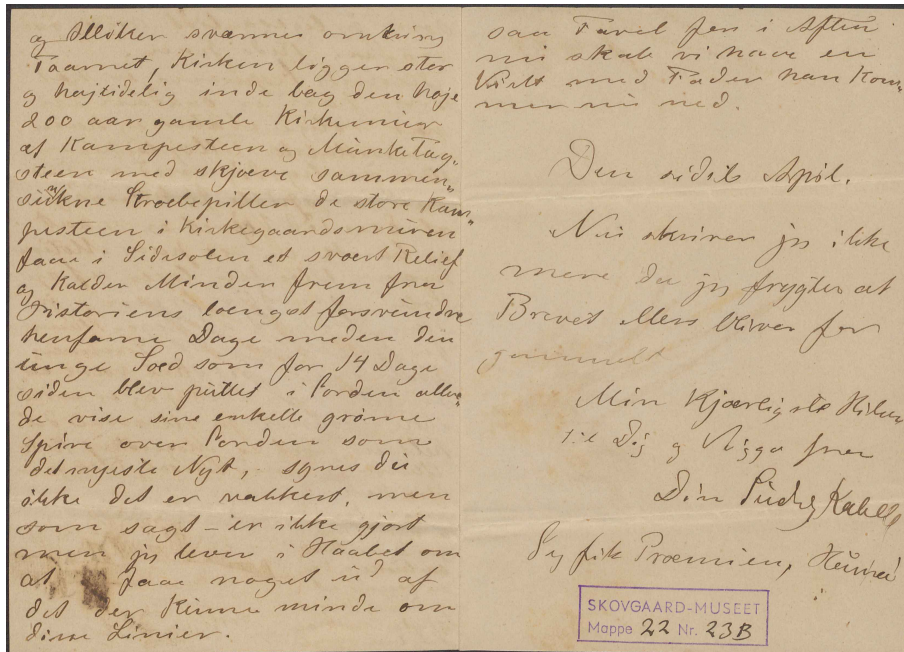 og Alliker sværmer omkring
Taarnet, Kirken ligger stor
og højtidelig inde bag den høje
200 aar gamle Kirkemuur
af Kampesteen og Munketag-
steen med skjæve sammen-
sunkne Stræbepiller de store Kam-
pesteen i Kirkegaardsmuren
faae i Sidesolen et svært Relief
og Kalder Minder frem fra
Historiens længst forsvundne
henfarne Dage meden den
unge Sæd som for 14 Dage
siden blev puttet i Jorden allere-
de vise sine enkelte grønne
Spire over Jorden som
det nyeste Nyt, synes du
ikke det er vakkert, men
som sagt - er ikke gjort
men jeg lever i Haabet om
at faae noget ud af
det der Kunne minde om
disse Linier.
saa Farvel for i Aften
nu skal vi have en
Vist med Fader han Kom-
mer nu ned.
Den sidste April.
Nu skriver jeg ikke
mere da jeg frygter at
Brevet ellers bliver for
gammelt
Min Kjærligste Hilsen
til Dig og Viggo fra
Din Ludvig Kabell
Jeg fik Præmien, Hurra
!
SKOVGAARD-MUSEET
Mappe 22 Nr. 23B